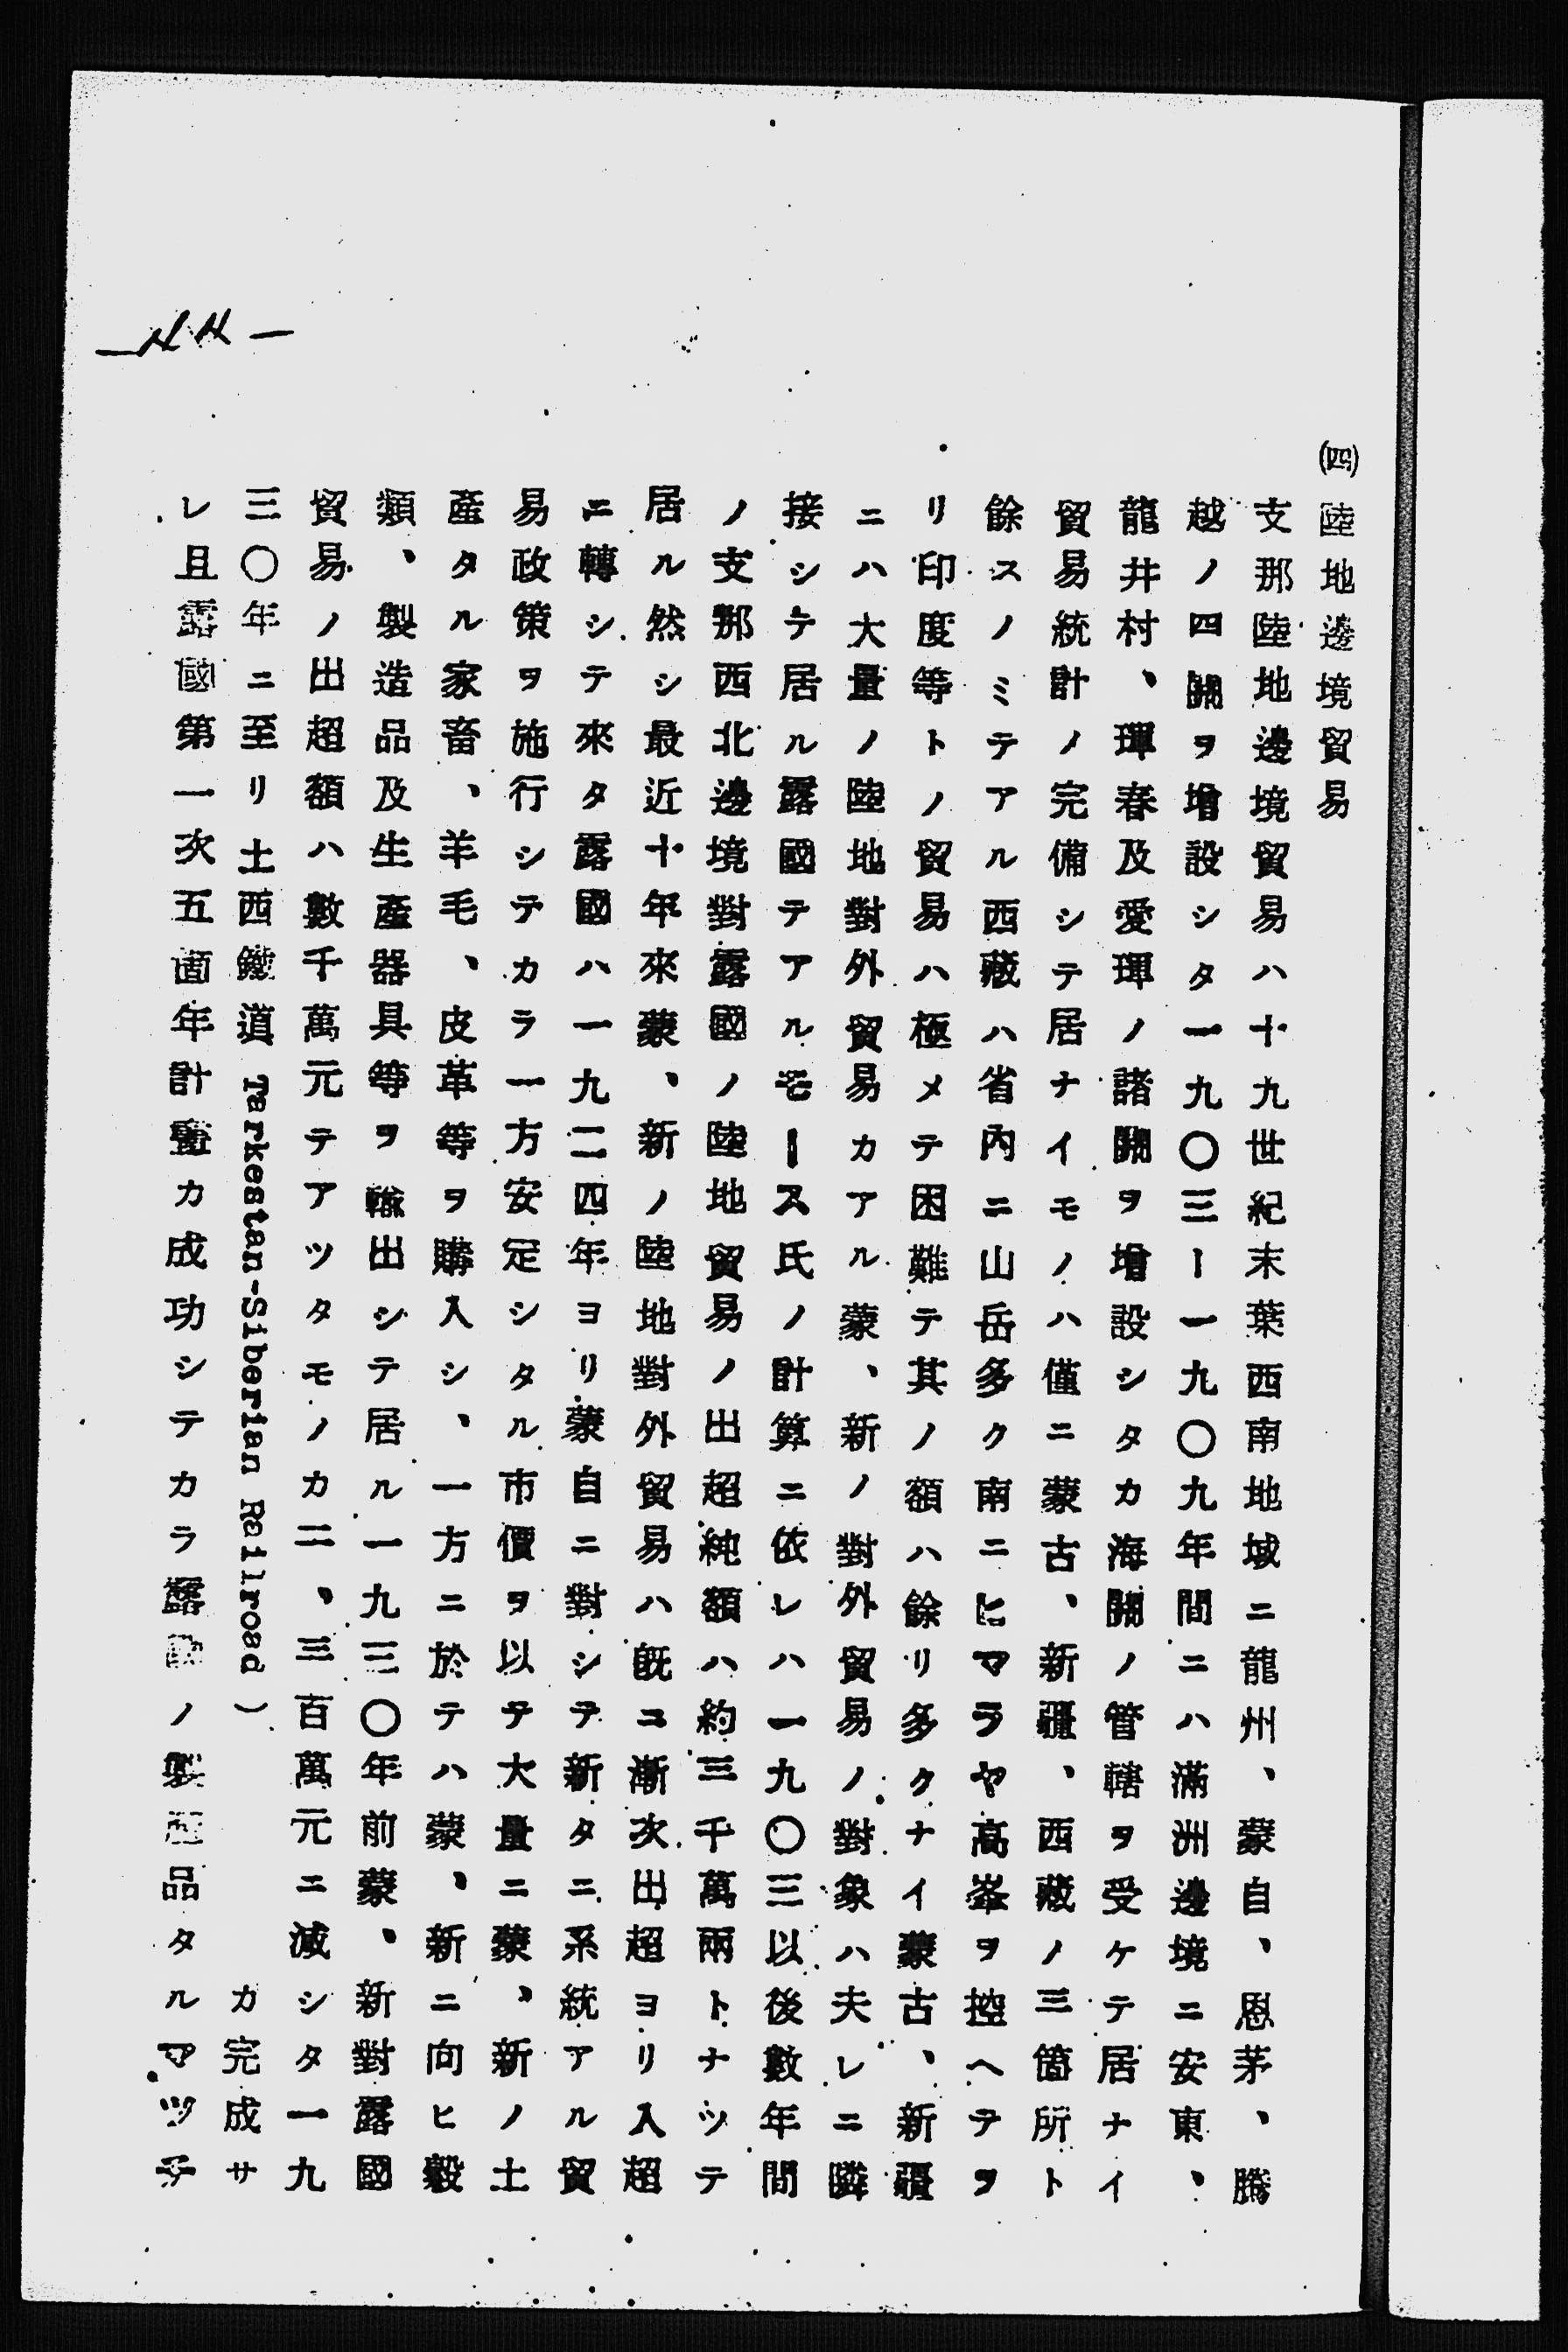 (四)陸地邊境貿易
支那陸地邊境貿易ハ十九世紀末葉西南地域ニ龍州、蒙自、恩茅、騰
越ノ四關ヲ增設シタ一九〇三ー一九〇九年間ニハ滿洲邊境ニ安東、
龍井村、琿春及愛琿ノ諸關ヲ增設シタカ海關ノ管轄ヲ受ケテ居ナイ
貿易統計ノ完備シテ居ナイモノハ僅ニ蒙古、新疆、西藏ノ三箇所ト
餘スノミテアル西藏ハ省內ニ山岳多ク南ニヒマラヤ高峯ヲ控ヘテヲ
リ印度等トノ貿易ハ極メテ困難テ其ノ額ハ餘リ多クナイ蒙古、新疆
ニハ大量ノ陸地對外貿易カアル蒙、新ノ對外貿易ノ對象ハ夫レニ隣
接シテ居ル露國テアルモース氏ノ計算ニ依レハ一九〇三以後數年間
ノ支那西北邊境對露國ノ陸地貿易ノ出超純額ハ約三千萬兩トナツテ
居ル然シ最近十年來蒙、新ノ陸地對外貿易ハ既ニ漸次出超ヨリ入超
ニ轉シテ來タ露國ハ一九二四年ヨリ蒙自ニ對シテ新タニ系統アル貿
易政策ヲ施行シテカラ一方安定シタル市價ヲ以テ大量ニ蒙、新ノ土
產タル家畜、羊毛、皮革等ヲ購入シ、一方ニ於テハ蒙、新ニ向ヒ穀
類、製造品及生產器具等ヲ輸出シテ居ル一九三〇年前蒙、新對露國
貿易ノ出超額ハ數千萬元テアツタモノカ二、三百萬元ニ減シタ一九
三〇年ニ至リ土西鐵道 Tarkestan-Siberian Railroad ）カ完成サ
レ且露國第一次五箇年計畫カ成功シテカラ露國ノ製產品タルマツチ